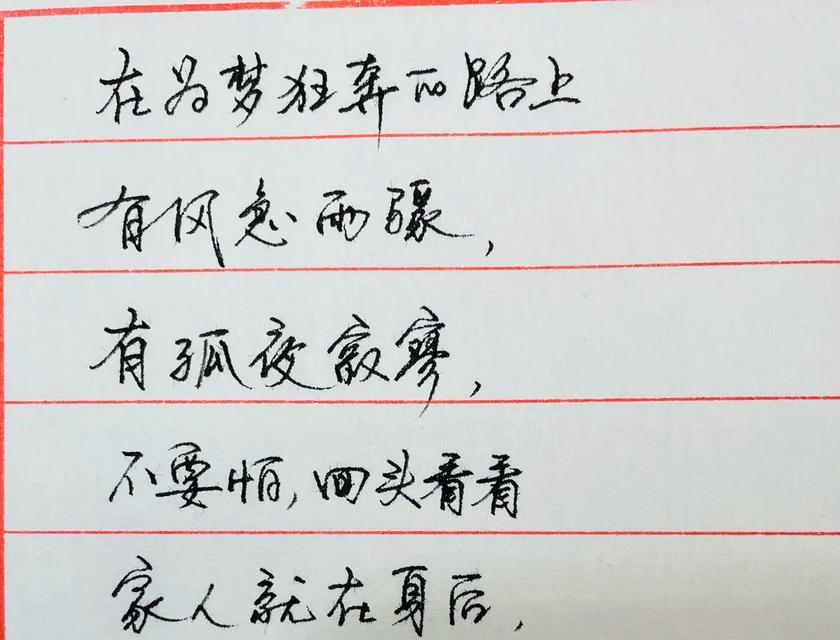 在为梦狂奔的路上
有风急雨骤，
有孤夜寂寥，
不要怕，回头看看
家人就在身后，